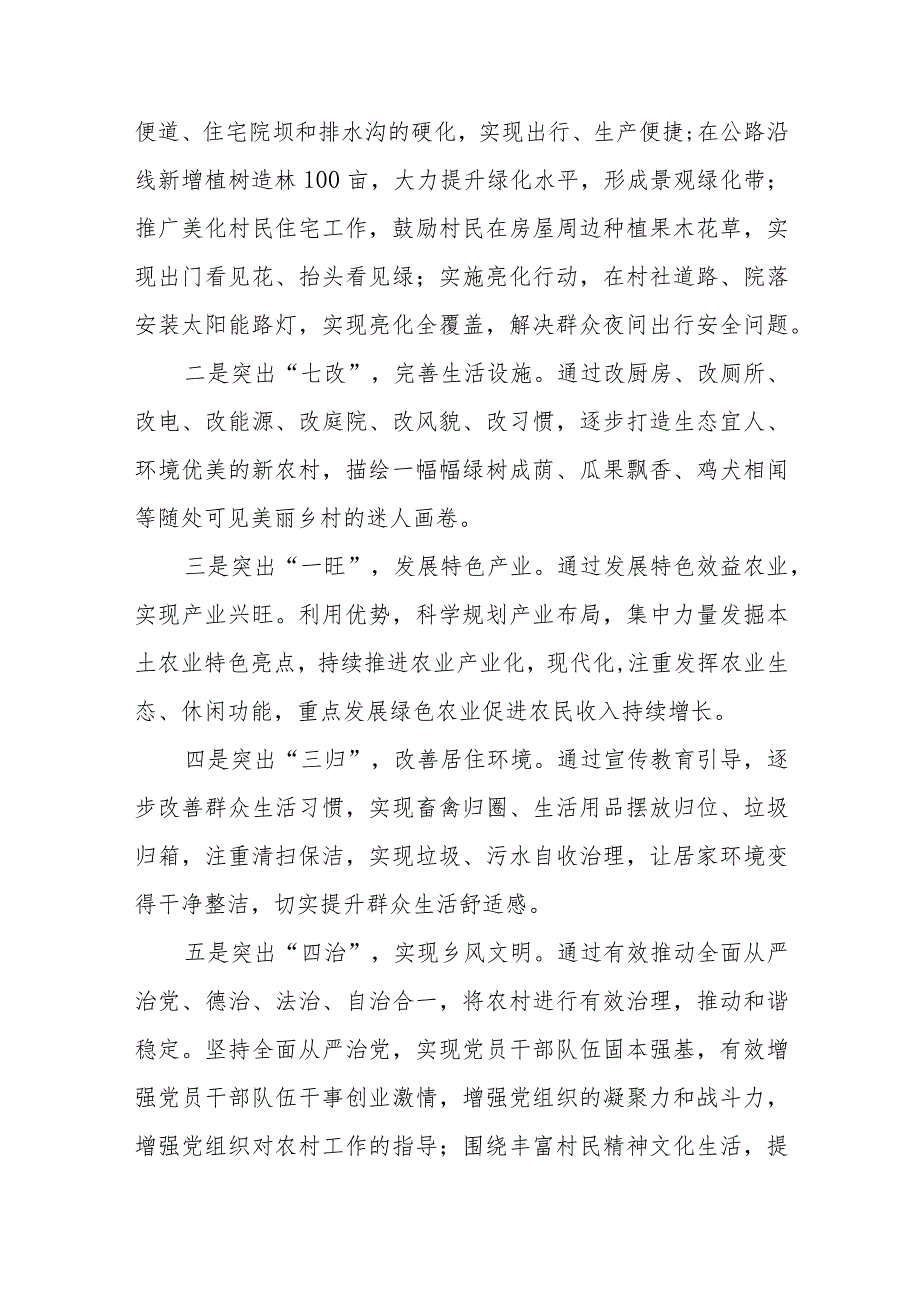 便道、住宅院坝和排水沟的硬化，实现出行、生产便捷;在公路沿
线新增植树造林100亩，大力提升绿化水平，形成景观绿化带；
推广美化村民住宅工作，鼓励村民在房屋周边种植果木花草，实
现出门看见花、抬头看见绿；实施亮化行动，在村社道路、院落
安装太阳能路灯，实现亮化全覆盖，解决群众夜间出行安全问题。
二是突出“七改”，完善生活设施。通过改厨房、改厕所、
改电、改能源、改庭院、改风貌、改习惯，逐步打造生态宜人、
环境优美的新农村，描绘一幅幅绿树成荫、瓜果飘香、鸡犬相闻
等随处可见美丽乡村的迷人画卷。
三是突出“一旺”，发展特色产业。通过发展特色效益农业，
实现产业兴旺。利用优势，科学规划产业布局，集中力量发掘本
土农业特色亮点，持续推进农业产业化，现代化,注重发挥农业生
态、休闲功能，重点发展绿色农业促进农民收入持续增长。
四是突出“三归”，改善居住环境。通过宣传教育引导，逐
步改善群众生活习惯，实现畜禽归圈、生活用品摆放归位、垃圾
归箱，注重清扫保洁，实现垃圾、污水自收治理，让居家环境变
得干净整洁，切实提升群众生活舒适感。
五是突出“四治”，实现乡风文明。通过有效推动全面从严
治党、德治、法治、自治合一，将农村进行有效治理，推动和谐
稳定。坚持全面从严治党，实现党员干部队伍固本强基，有效增
强党员干部队伍干事创业激情，增强党组织的凝聚力和战斗力，
增强党组织对农村工作的指导；围绕丰富村民精神文化生活，提